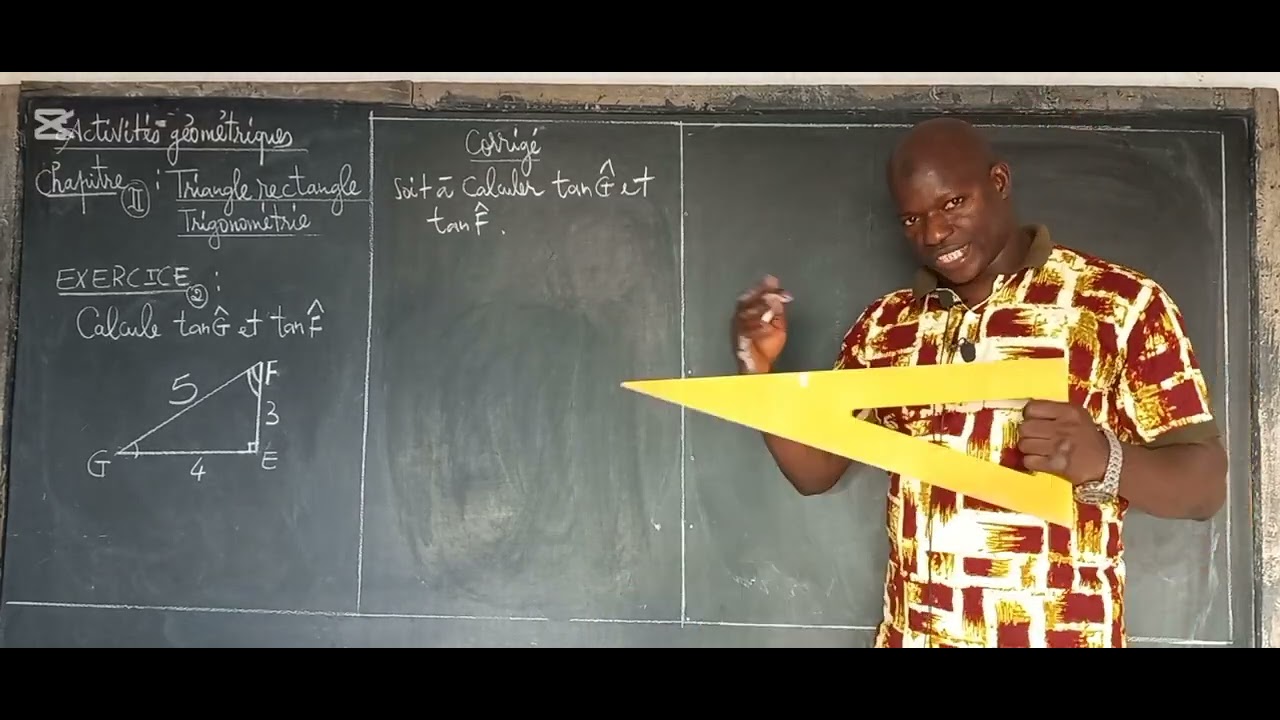 Activités géométriques
Chapitre II : Triangle rectangle
Trigonométrie
EXERCICE 2 :
Calcule tan Ĝ et tan F̂
5
F
3
G
4
E
Corrigé
Soit à Calculer tan Ĝ et
tan F̂.